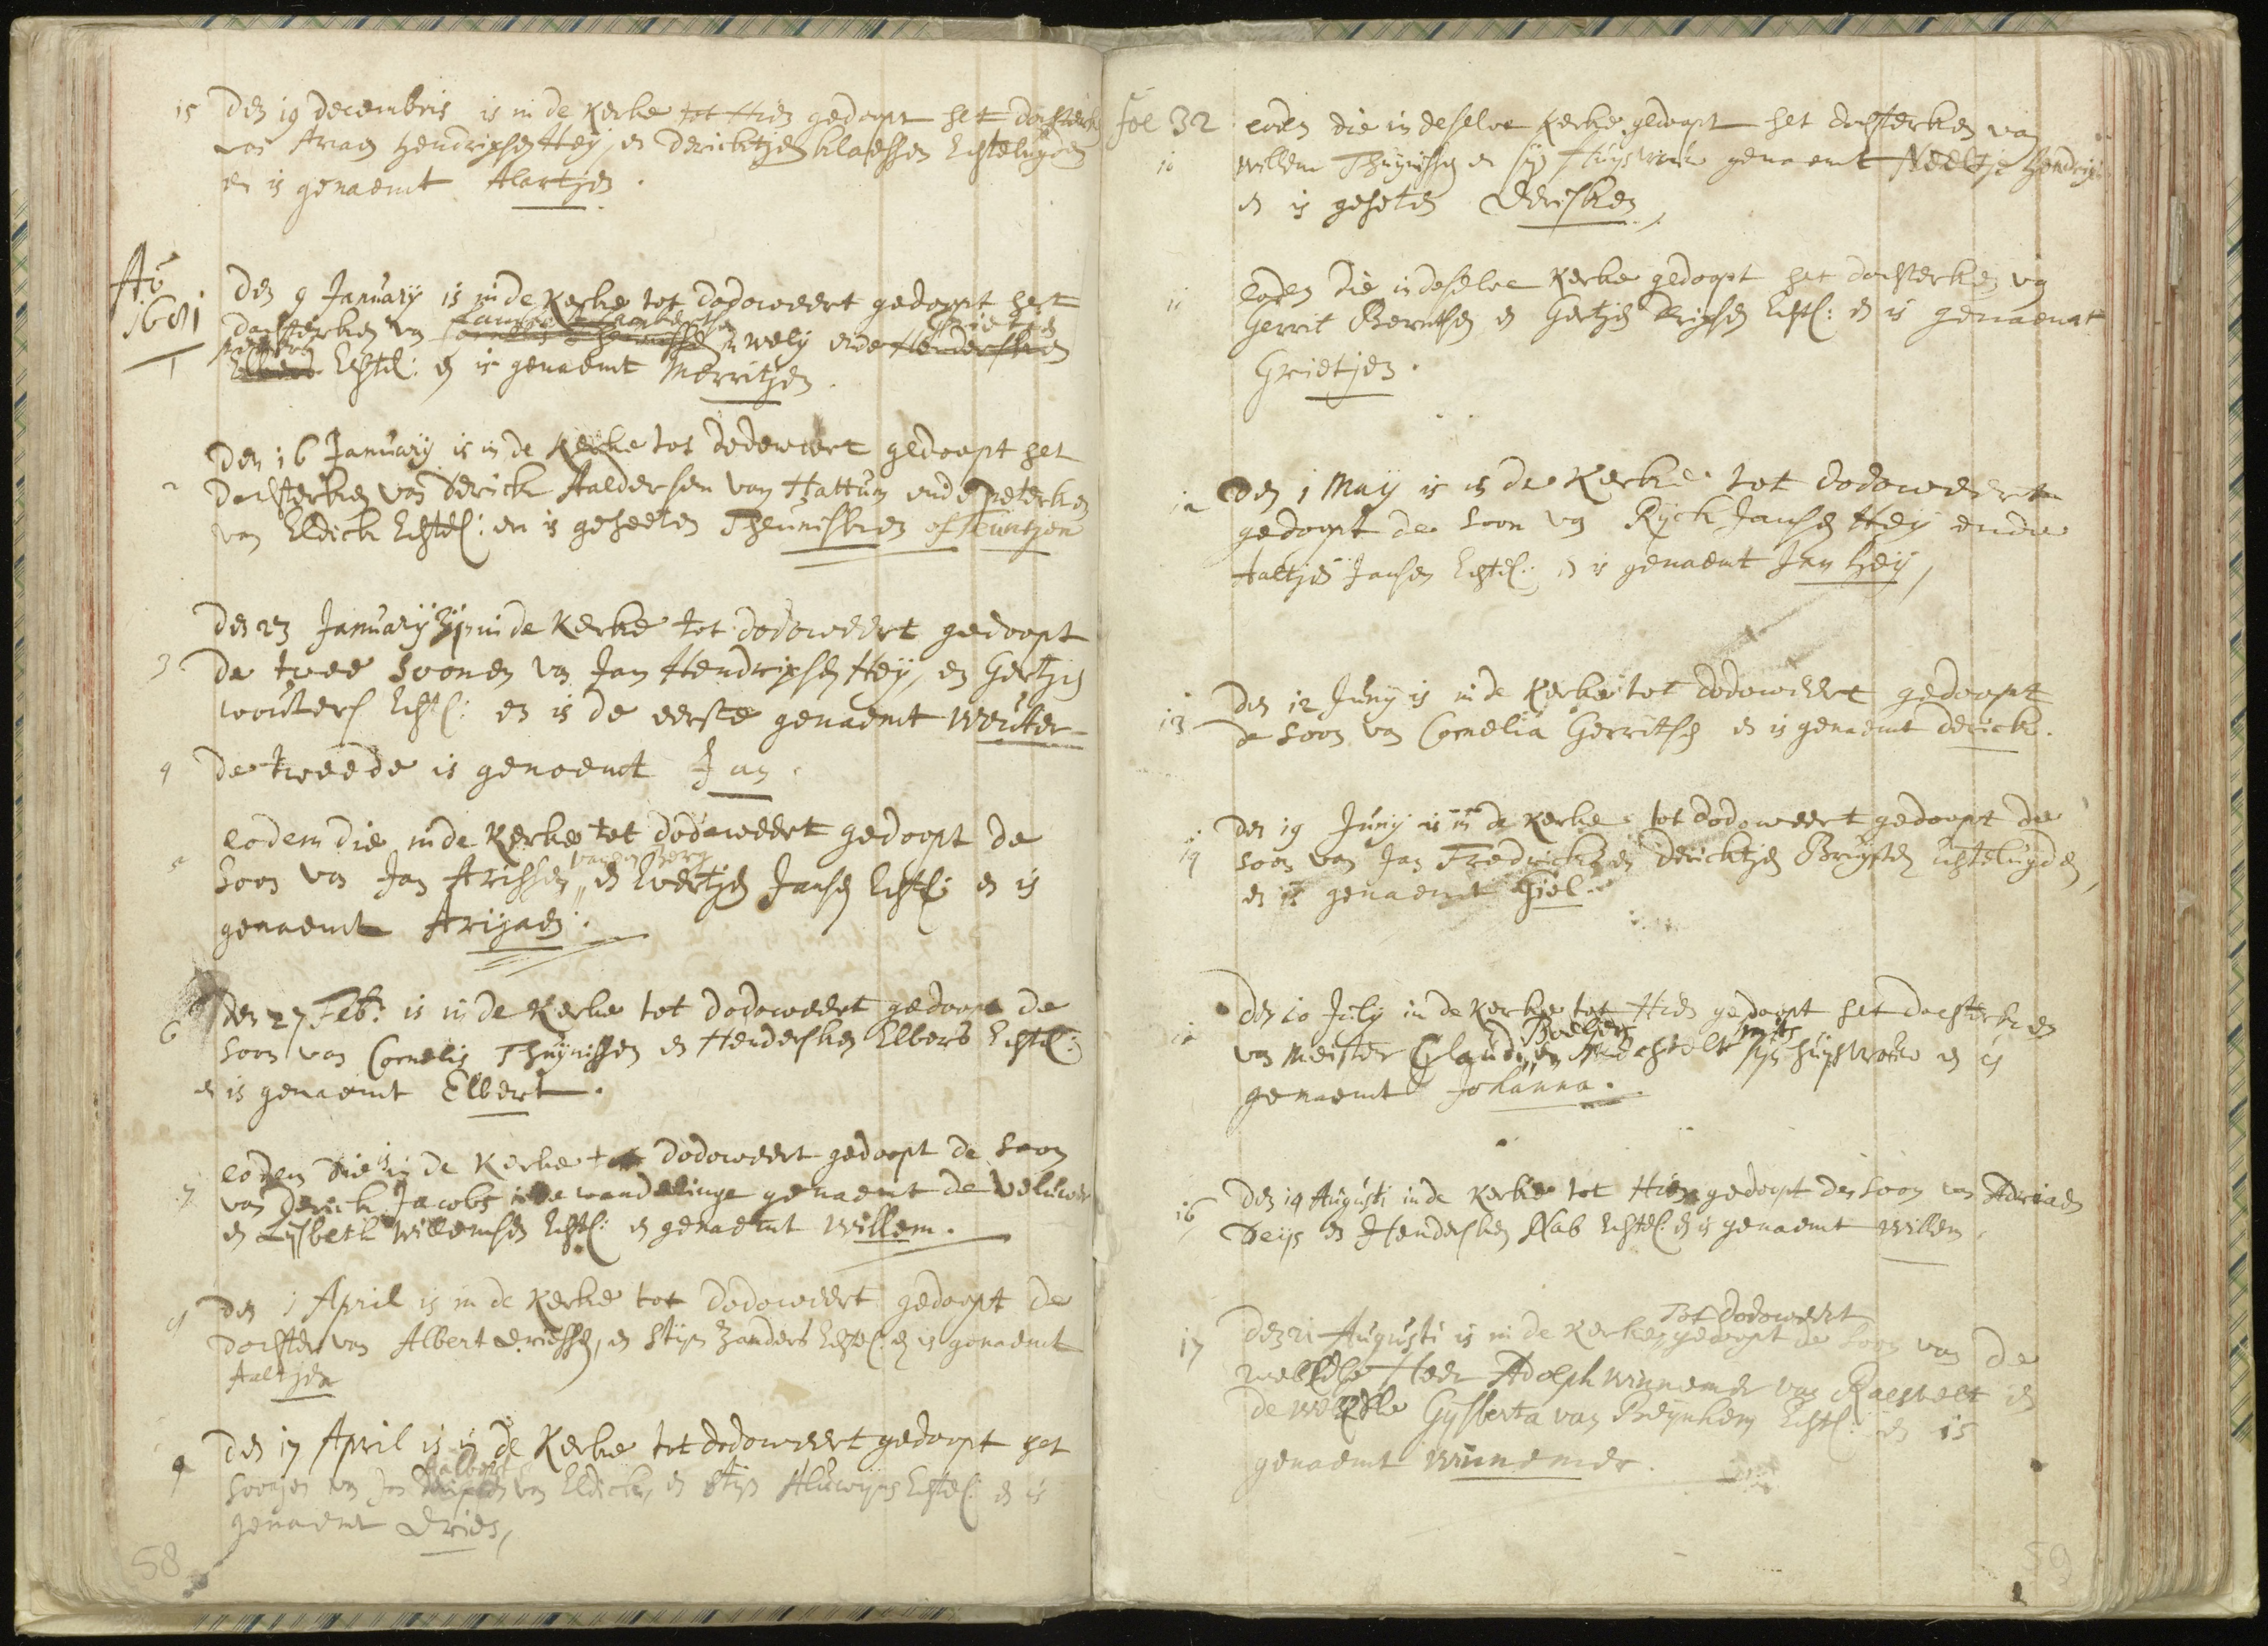 15 Den 19 decembris is in de Kerke tot Hien gedoopt het dochterken
van Ariaen Hendrixsen Heij, en Dericktjen Klaessen Echteluyden
en is genaemt Alartjen.
Ao
1681
1
Den 9 January is in de Kerke tot dodoweert gedoopt het
dochterken van
Echtel: en is genaemt Merritjen.
2
Den 16 January is in de Kerke tot dodeweert gedoopt het
dochterken van Derick Aaldersen van Hattum ende Peterken
van Eldick Echtel: en is geheeten Theunisken of Teuntjen
Den 23 January zijn in de Kerke tot dodoweert gedoopt
3 de twee soonen van Jan Hendrixsen Heij, en Gertjen
wouters Echtel: en is de eerste genaemt Wouter
4 de tweede is genoemt Jan.
eodem die in de Kerke tot dodoweert gedoopt de
van den Berg
5 soon van Jan Arissen en Evertjen Jansen Echtel: en is
genaemt Arijaen.
Den 27 Feb: is in de Kerke tot dodoweert gedoopt de
6 soon van Cornelis Thuynissen en Hendersken Elbers Echtel:
en is genaemt Elbert.
eodem die is in de Kerke tot dodoweert gedoopt de soon
7 van Derick Jacobs in de wandelinge genaemt de Veluwer
en Lijsbeth Willemsen Echtel: en genaemt Willem.
8 Den 1 April is in de Kerke tot dodoweert gedoopt de
dochter van Albert Driessen, en Stijn Zanders Echtel: en is genaemt
Aaltjen
9 Den 17 April is in de Kerke tot dodoweert gedoopt het
Aalbert
soontjen van Jan van Eldick, en Stijn Aluwijns Echtel: en is
genaemt Dries,
58
fol 32 eodem die in deselve Kerke gedoopt het dochterken van
10 Willem Thuynissen en sijn Huysvrouw genaemt Neeltje Hendrix
en is geheten Dersken,
11 eodem die in deselve Kerke gedoopt het dochterken van
Gerrit Berntsen en Gertjen Drissen Echtel: en is genaemt
Grietjen.
12 Den 1 May is in de Kerke tot dodoweert
gedoopt de soon van Ryck Jansen Heij ende
Aaltjen Jansen Echtel: en is genaemt Jan Heij,
13 Den 12 Juny is in de Kerke tot dodoweert gedoopt
de soon van Cornelia Gerritsen en is genaemt Derick.
Den 19 Juny is in de Kerke tot dodoweert gedoopt de
14 soon van Jan Fredricks en Dericktjen Brijsten Echteluyden,
en is genaemt Giel.
Den 10 July in de Kerke tot Hien gedoopt het dochterken
15 van Meister Glaudi en Mechtelt sijn huysvrouw en is
genaemt Johanna.
16 Den 14 Augusti in de Kerke tot Hien gedoopt den soon van Adriaen
Deijs en Hendersken Nab Echtel: en is genaemt Willem.
tot dodoweert
17 Den 21 Augusti is in de Kerke gedoopt de soon van de
Heer Adolph Winnemer van Raesvelt en
de Gysberta van Beynhem Echtel: en is
genaemt Winnemer.
59